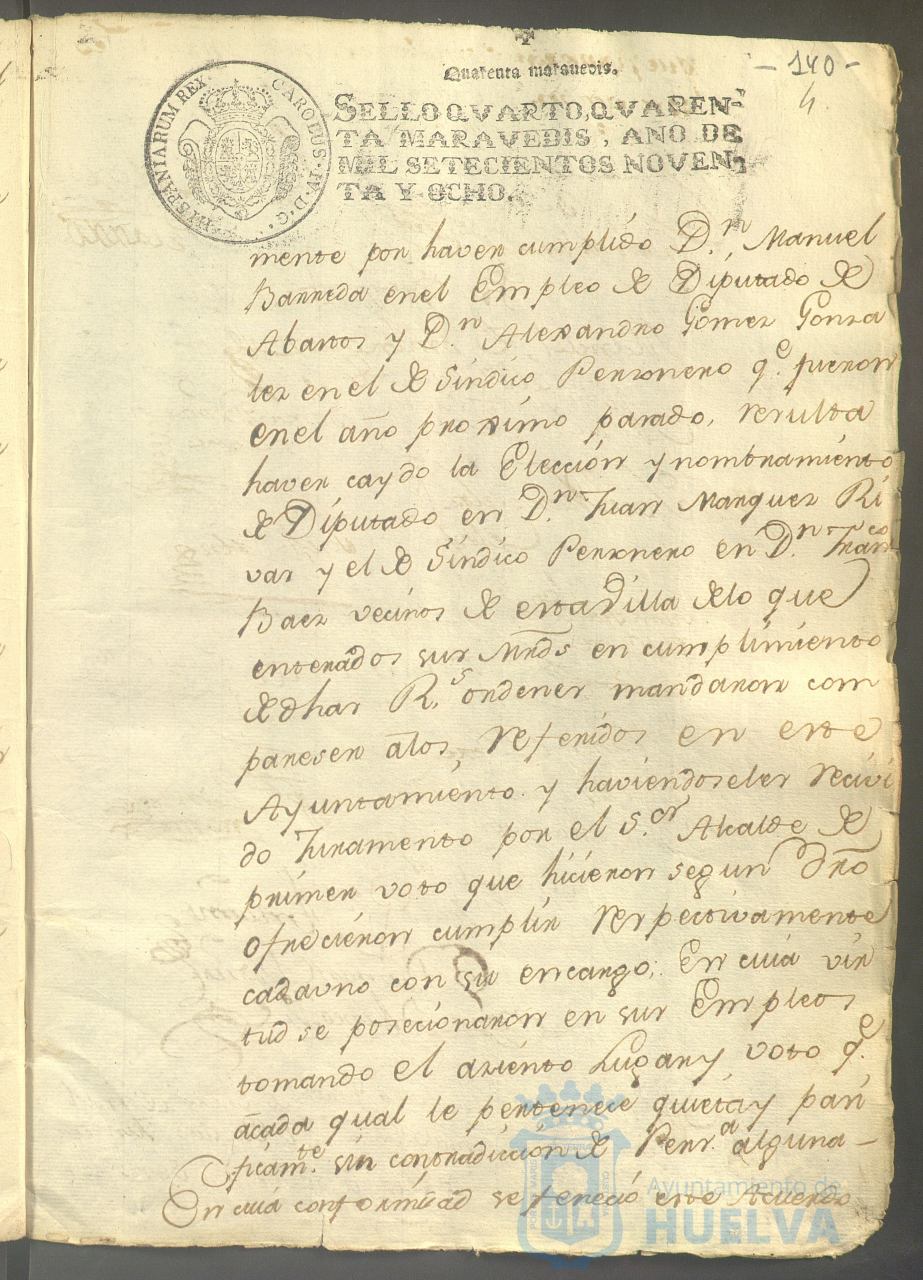 Quarenta maravedis.
- 140 -
4.
HISPANIARUM REX. CAROLUS. IV. D. G.
SELLO QVARTO, QVAREN-
TA MARAVEDIS, AÑO DE
MIL SETECIENTOS NOVEN-
TA Y OCHO.
mente por haver cumplido Dn. Manuel
Barreda en el Empleo de Diputado de
Abastos y Dn. Alexandro Gomez Gonza
lez en el de Sindico Personero qe. fueron
en el año proximo pasado, resulta
haver caydo la Elección y nombramiento
de Diputado en Dn. Juan Marquez Ri
vas y el de Sindico Personero en Dn. Franco
Baez vecinos de esta Villa de lo que
enterados sus Mrds en cumplimiento
de dhas Rs. ordenes mandaron com
paresen a los referidos en este
Ayuntamiento y haviendoseles recivi
do Juramento por el Sor. Alcalde de
primer voto que hicieron segun dro
ofrecieron cumplir respectivamente
cada uno con su encargo; En cuia vir
tud se posecionaron en sus Empleos
tomando el asiento Lugar y voto qe.
a cada qual le pertenece quieta y pasi
ficamte. sin contradiccion de Persa. alguna -
En cuia conformidad se feneció este Acuerdo
Ayuntamiento de
HUELVA